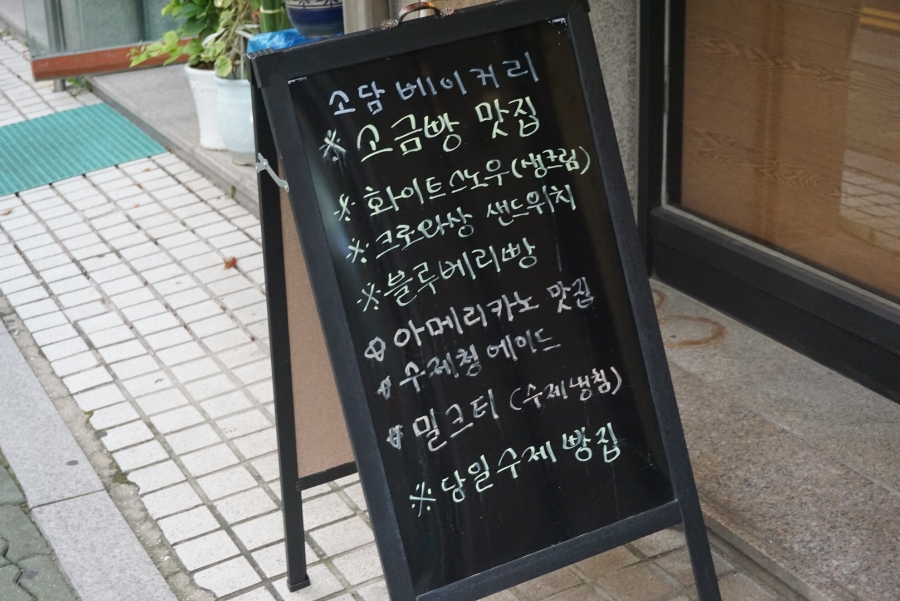 소담베이커리
※ 소금빵 맛집
※ 화이트스노우(생크림)
※ 크로와상 샌드위치
※ 블루베리빵
아메리카노 맛집
수제청에이드
밀크티 (수제냉침)
※ 당일수제빵집